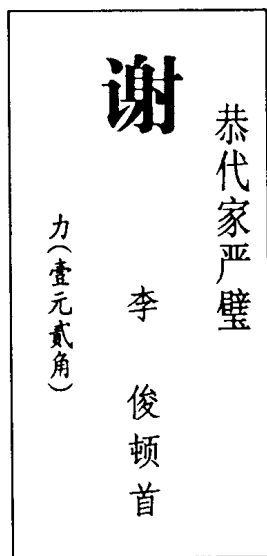 恭代家严璧
谢
李 俊顿首
力(壹元贰角)